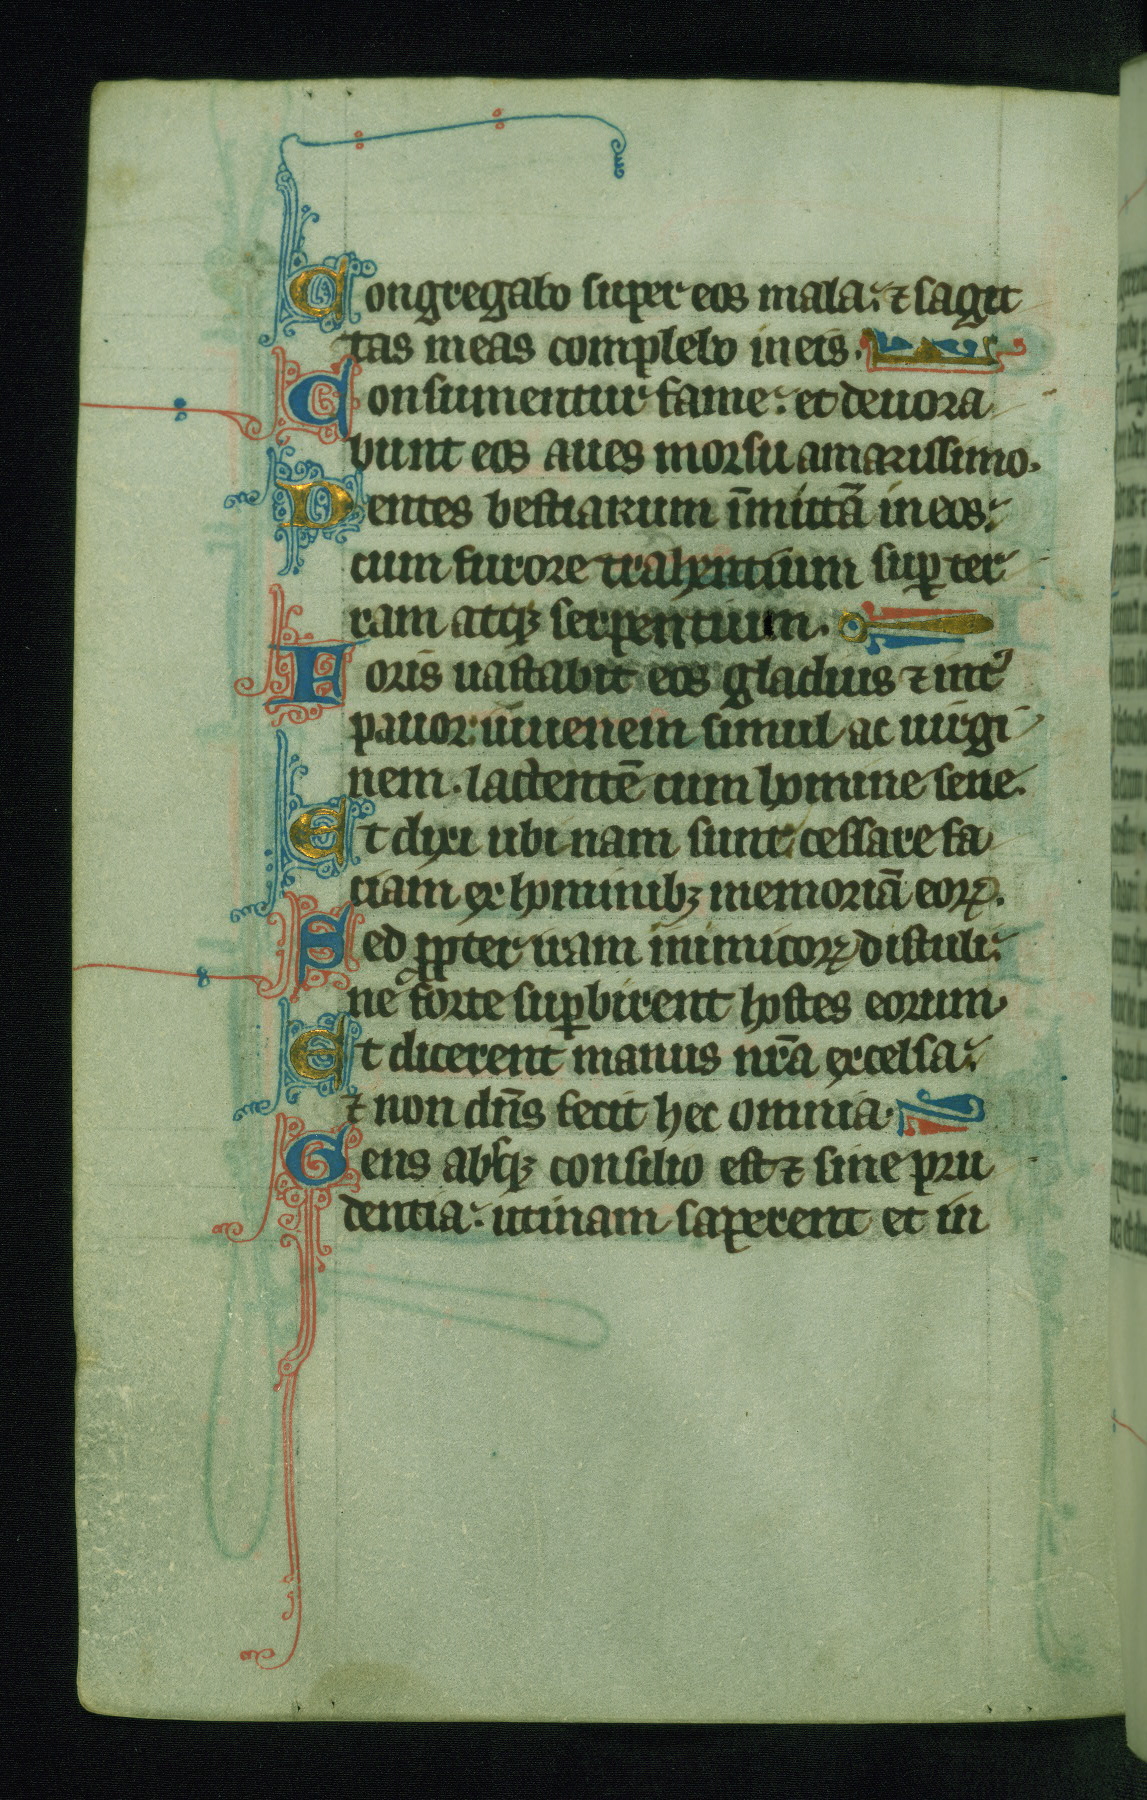 Congregabo super eos mala: ⁊ sagit
tas meas complebo in eis.
Consumentur fame: et deuora
bunt eos aues morsu amarissimo.
Dentes bestiarum īmittā in eos:
cum furore trahentium suꝑ ter
ram atqꝫ serpentium.
Foris uastabit eos gladius ⁊ int᷒
pauor: iuuenem simul ac uirgi
nem. lactentē cum homine sene.
Et dixi ubi nam sunt: cessare fa
ciam ex hominibꝫ memoriā eoꝝ.
Sed ꝓpter iram inimicoꝝ distuli:
ne forte suꝑbirent hostes eorum
Et dicerent manus nr̄a excelsa:
⁊ non dn̄s fecit hec omnia.
Gens absqꝫ consilio est ⁊ sine pru
dentia: utinam saperent et in